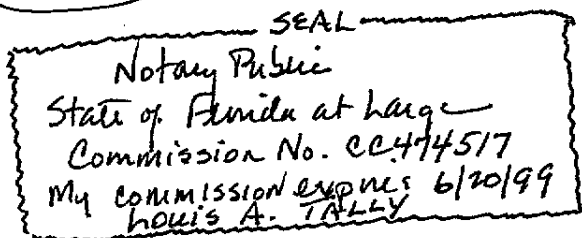 SEAL
Notary Public
State of Florida at Large
Commission No. CC474517
My commission expires 6/20/99
Louis A. TALLY